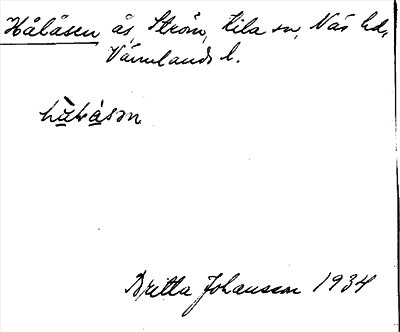 Hålåsen ås, Ström, Kila sn, Näs hd,
Värmlands l.
Britta Johansson 1934